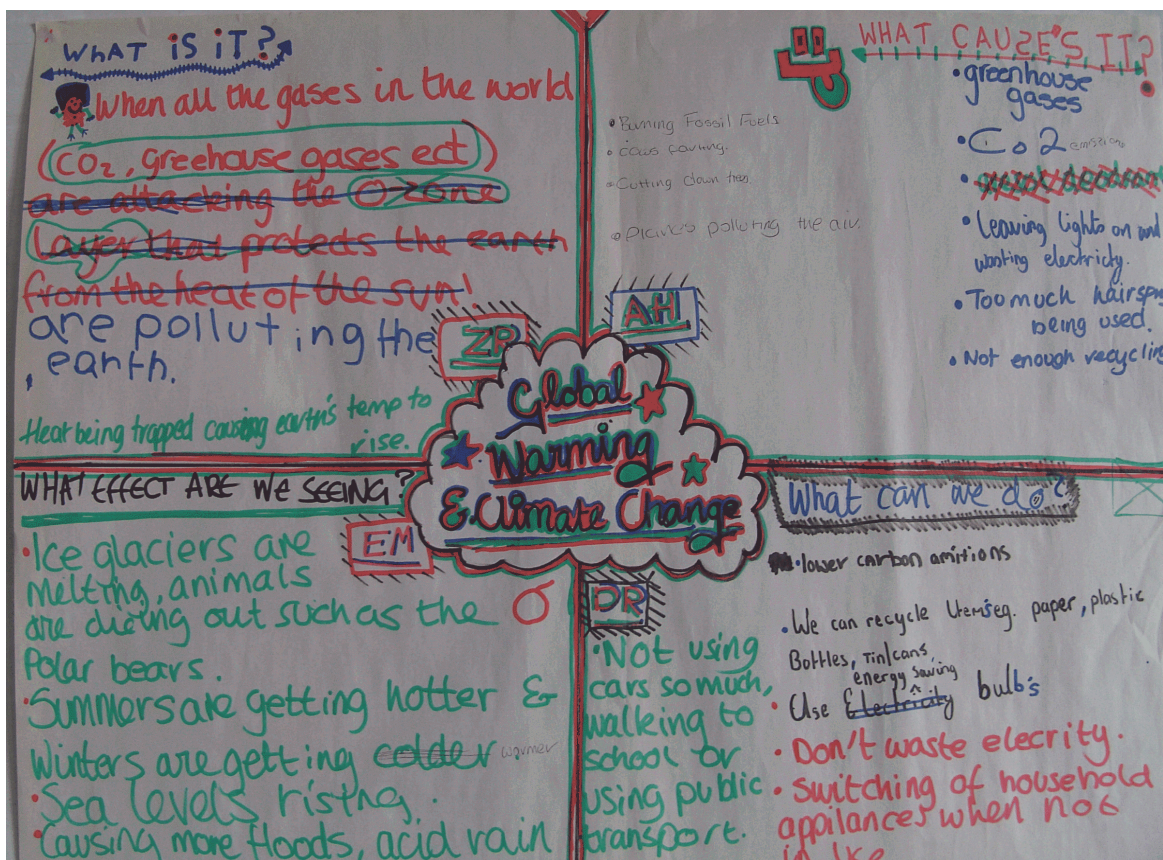 WHAT IS IT?
When all the gases in the world
(CO2, greehouse gases ect)
are attacking the Ozone
Layer that protects the earth
from the heat of the sun!
are polluting the
earth.
Heat being trapped causing earth's temp to
rise.
ZR
WHAT CAUSE'S IT?
• Burning Fossil Fuels
• cows farting.
• Cutting down trees
• Planes polluting the air.
• greenhouse
gases
• Co2 emissions
• Leaving lights on and
wasting electricity.
• Too much hairspray
being used.
• Not enough recycling
AH
Global
Warming
& Climate Change
WHAT EFFECT ARE WE SEEING?
EM
• Ice glaciers are
melting, animals
are dieing out such as the
Polar bears.
• Summers are getting hotter &
Winters are getting colder warmer
• Sea levels rising.
• Causing more floods, acid rain
What can we do?
DR
• Not using
cars so much,
walking to
school or
using public
transport.
• lower carbon amitions
• We can recycle items eg. paper, plastic
Bottles, Tin/cans
energy saving
• Use Electricity bulb's
• Don't waste elecrity.
• Switching of household
appilances when not
in